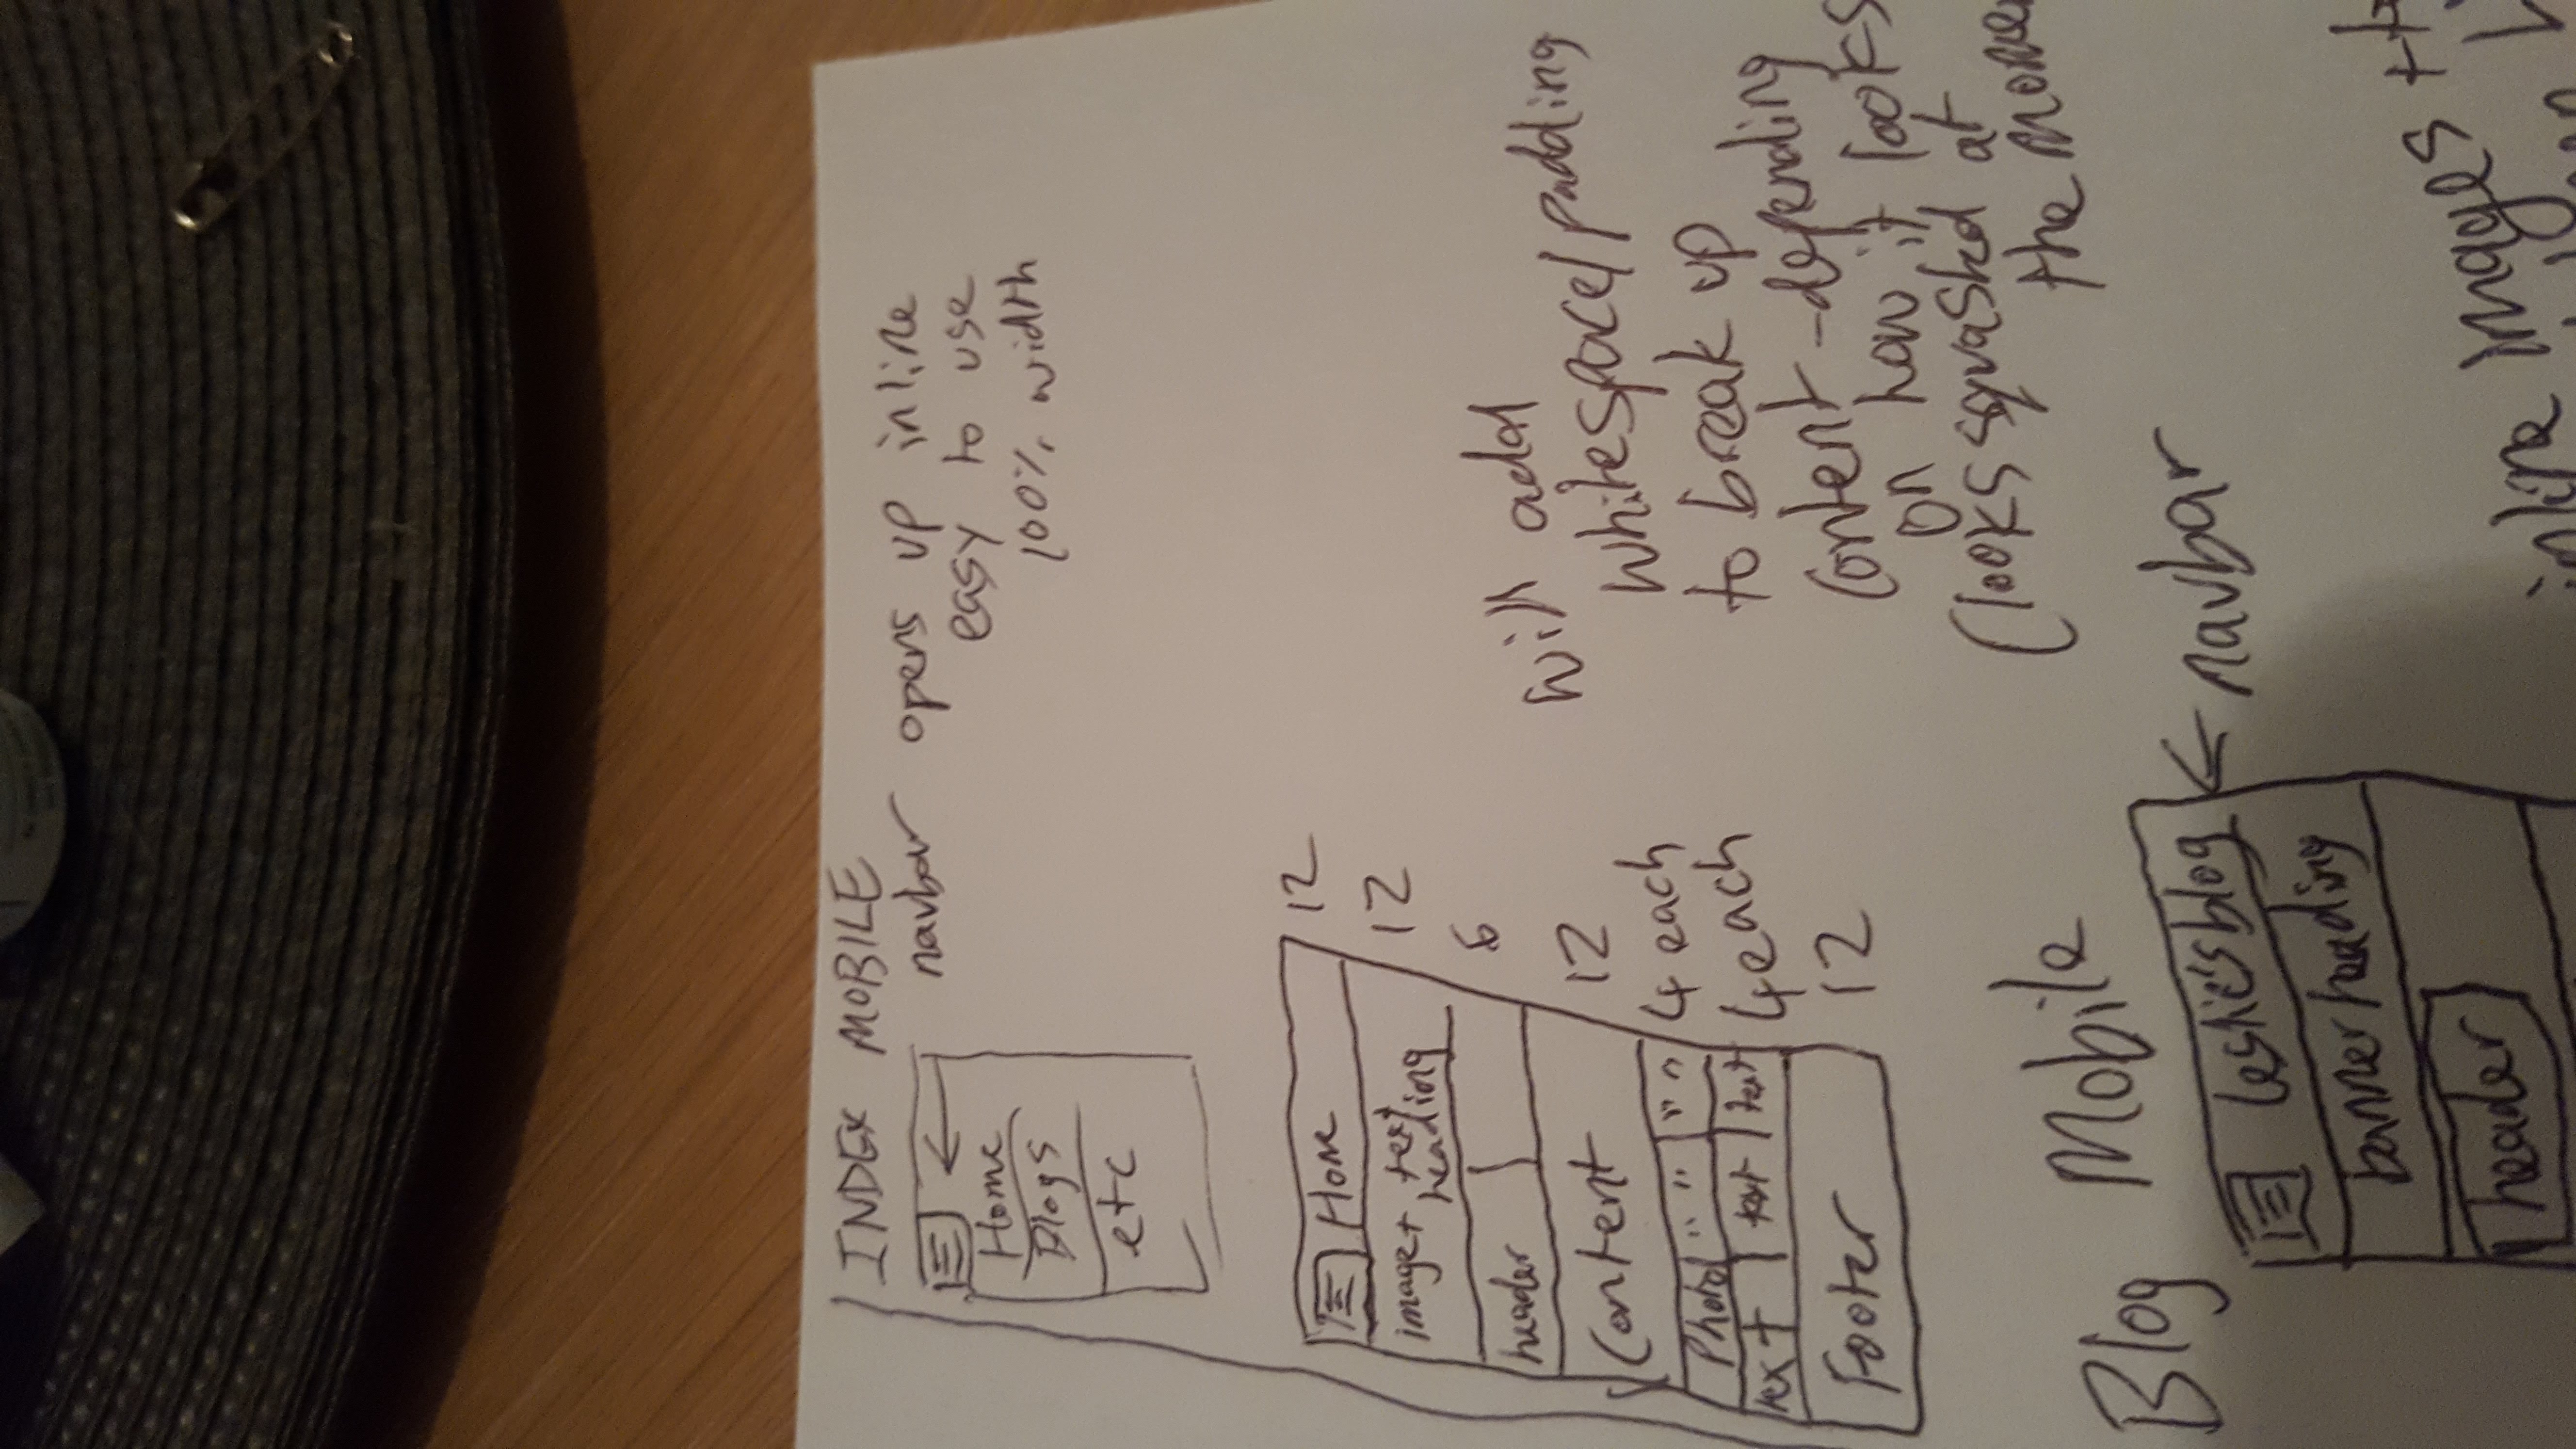 INDEX MOBILE
navbar opens up inline
easy to use
100% width
Home
Blogs
etc
Home 12
image + text
heading 12
header 6
Content 12
Photo " " " " 4 each
text text text 4 each
Footer 12
will add
whitespace/padding
to break up
content - depending
on how it looks
(looks squashed at
the
Blog Mobile
Leslie's blog
navbar
banner heading
header
inline images +